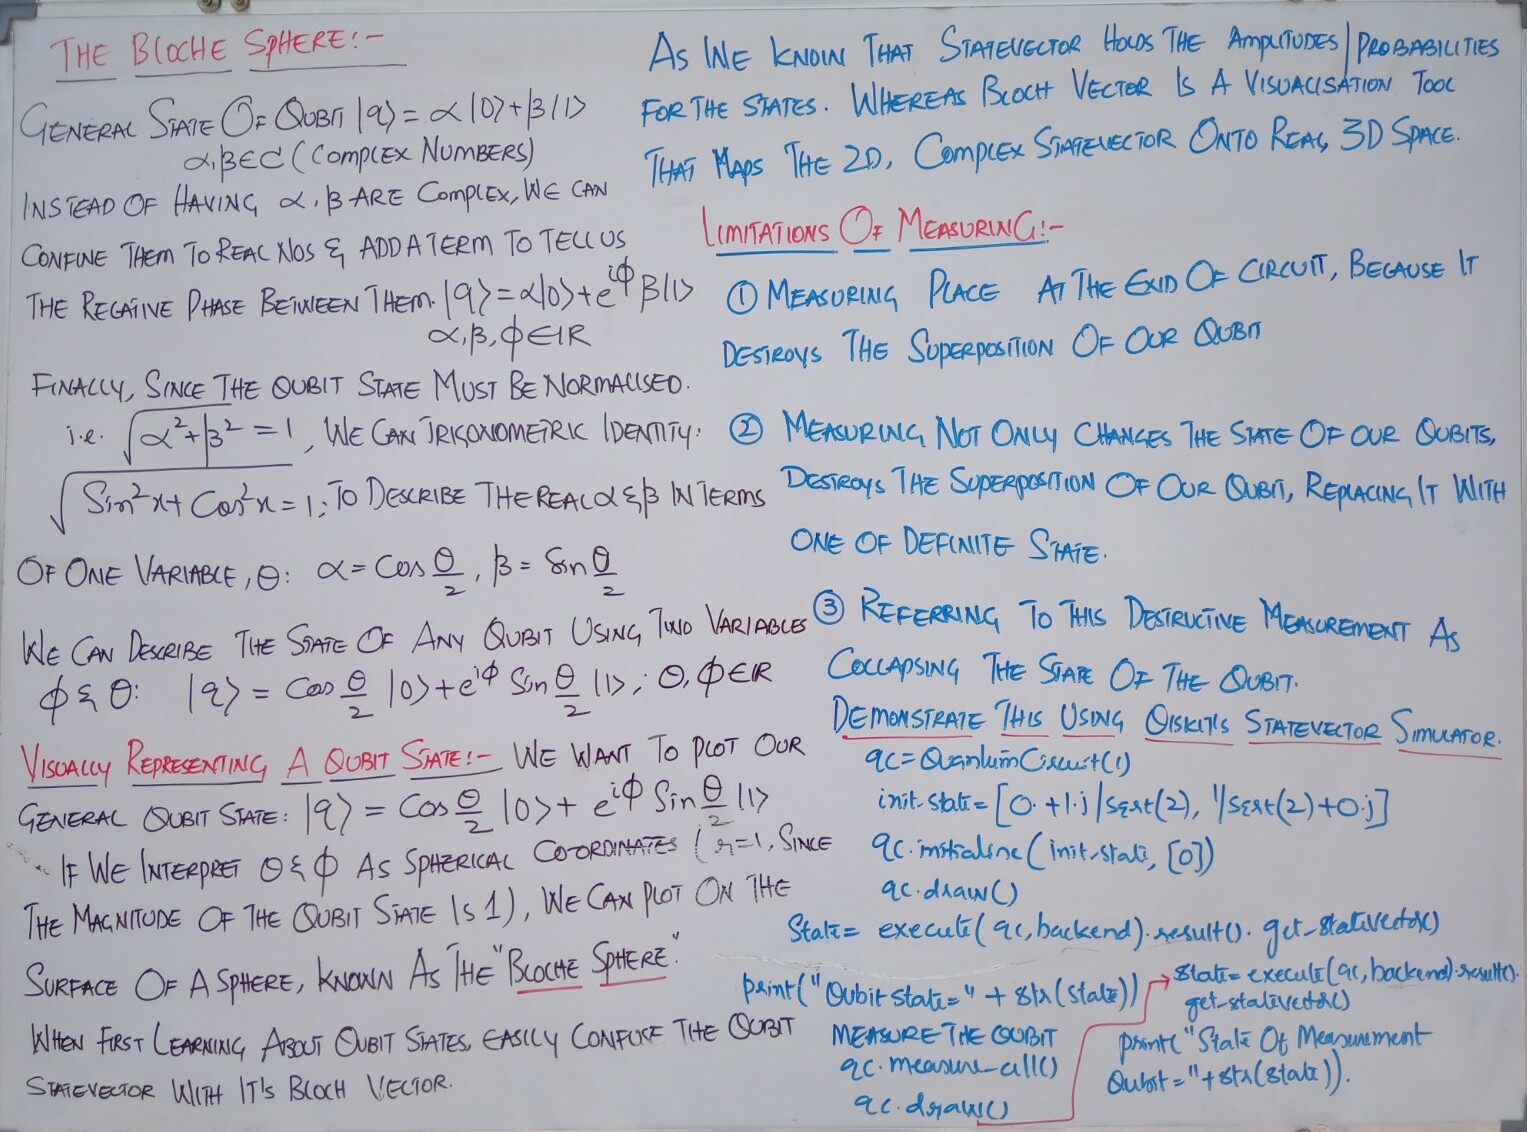 THE BLOCHE SPHERE:-
GENERAL STATE OF QUBIT |q⟩ = α|0⟩+β|1⟩
α,β∈C (COMPLEX NUMBERS)
INSTEAD OF HAVING α,β ARE COMPLEX, WE CAN
CONFINE THEM TO REAL NOS & ADD A TERM TO TELL US
THE RELATIVE PHASE BETWEEN THEM. |q⟩=α|0⟩+e^{iϕ} β|1⟩
α,β,ϕ∈IR
FINALLY, SINCE THE QUBIT STATE MUST BE NORMALISED.
i.e. √α²+β² = 1, WE CAN TRIGONOMETRIC IDENTITY:
√Sin²x+Cos²x = 1; TO DESCRIBE THE REAL α & β IN TERMS
OF ONE VARIABLE, θ: α= Cos θ/2, β = Sin θ/2
WE CAN DESCRIBE THE STATE OF ANY QUBIT USING TWO VARIABLES
ϕ & θ: |q⟩ = Cos θ/2 |0⟩+e^{iϕ} Sin θ/2 |1⟩; θ,ϕ∈R
VISUALLY REPRESENTING A QUBIT STATE:- WE WANT TO PLOT OUR
GENERAL QUBIT STATE: |q⟩ = Cos θ/2 |0⟩+ e^{iϕ} Sin θ/2 |1⟩
IF WE INTERPRET θ & ϕ AS SPHERICAL CO-ORDINATES (r=1, SINCE
THE MAGNITUDE OF THE QUBIT STATE IS 1), WE CAN PLOT ON THE
SURFACE OF A SPHERE, KNOWN AS THE "BLOCHE SPHERE."
WHEN FIRST LEARNING ABOUT QUBIT STATES, EASILY CONFUSE THE QUBIT
STATEVECTOR WITH IT'S BLOCH VECTOR.
AS WE KNOW THAT STATEVECTOR HOLDS THE AMPLITUDES/PROBABILITIES
FOR THE STATES. WHEREAS BLOCH VECTOR IS A VISUALISATION TOOL
THAT MAPS THE 2D, COMPLEX STATEVECTOR ONTO REAL, 3D SPACE.
LIMITATIONS OF MEASURING:-
① MEASURING PLACE AT THE END OF CIRCUIT, BECAUSE IT
DESTROYS THE SUPERPOSITION OF OUR QUBIT
② MEASURING NOT ONLY CHANGES THE STATE OF OUR QUBITS,
DESTROYS THE SUPERPOSITION OF OUR QUBIT, REPLACING IT WITH
ONE OF DEFINITE STATE.
③ REFERRING TO THIS DESTRUCTIVE MEASUREMENT AS
COLLAPSING THE STATE OF THE QUBIT.
DEMONSTRATE THIS USING QISKIT'S STATEVECTOR SIMULATOR.
qc=QuantumCircuit(1)
init-state=[0.+1.j/sqrt(2), 1/sqrt(2)+0.j]
qc.initialise(init-state,[0])
qc.draw()
State= execute(qc,backend).result().get-statevector()
print("Qubit State=" + str(state))
MEASURE THE QUBIT
qc.measure-all()
qc.draw()
state=execute(qc,backend).result().
get-statevector()
print("State Of Measurement
Qubit="+str(state)).